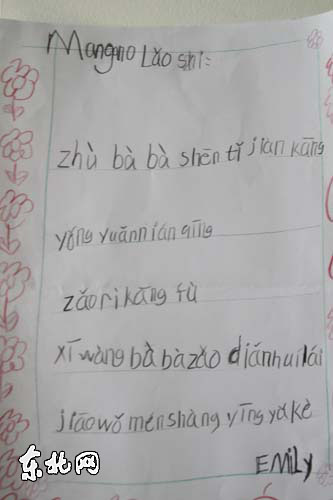 Mangno Lǎo shī:
zhù bà bà shēn tǐ jiàn kāng
yǒng yuǎn nián qīng
zǎo rì kāng fù
xī wàng bà bà zǎo diǎn huí lái
jiāo wǒ men shàng yīng yǔ kè
EMiLy
东北网